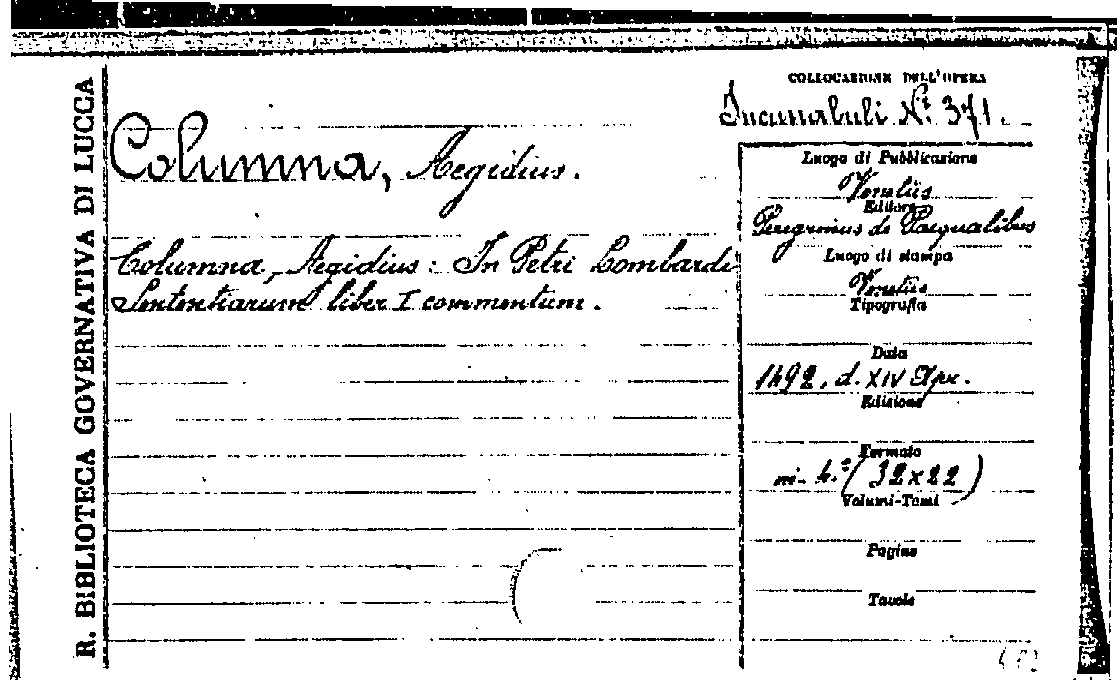 R. BIBLIOTECA GOVERNATIVA DI LUCCA
COLLOCAZIONE DELL'OPERA
Incunabuli N.° 371.
Columna, Aegidius.
Columna, Aegidius: In Petri Lombardi
Sententiarum liber I commentum.
Luogo di Pubblicazione
Venetiis
Editore
Peregrinus de Pasqualibus
Luogo di stampa
Venetiis
Tipografia
Data
1492. d. XIV Apr.
Edizione
Formato
in- 4.° (32x22)
Volumi-Tomi
Pagine
Tavole